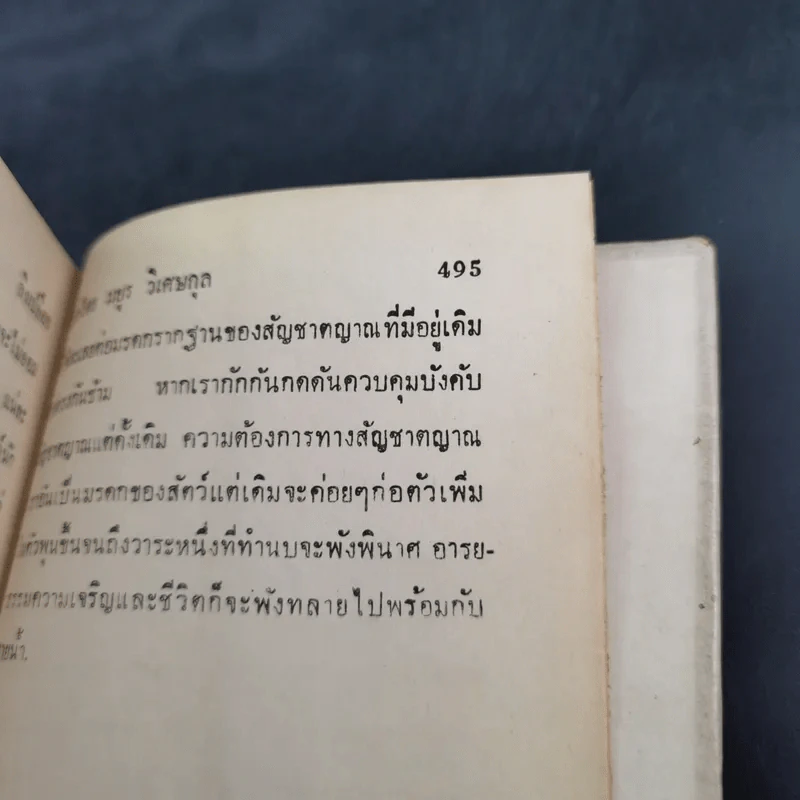 มยุร วิเศษกุล 495
รากฐานของสัญชาตญาณที่มีอยู่เดิม
หากเรากักกันกดดันควบคุมบังคับ
แต่ดั้งเดิม ความต้องการทางสัญชาตญาณ
เป็นมรดกของสัตว์แต่เดิมจะค่อยๆก่อตัวเพิ่ม
พูนขึ้นจนถึงวาระหนึ่งที่ทำนบจะพังพินาศ อารย-
ธรรมความเจริญและชีวิตก็จะพังทลายไปพร้อมกับ